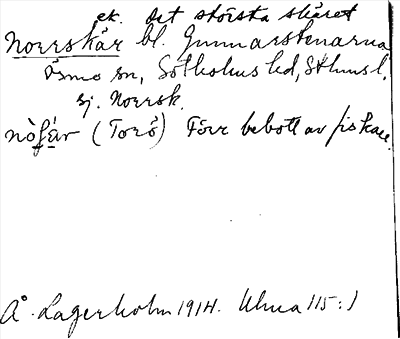 ek. det största skäret
Norrskär bl. Gunnarstenarna
Ösmo sn, Sotholms hd, Sthms l.
ej. Norrsk.
(Torö) Förr bebott av fiskare.
Å. Lagerholm 1914. Ulma 115:1